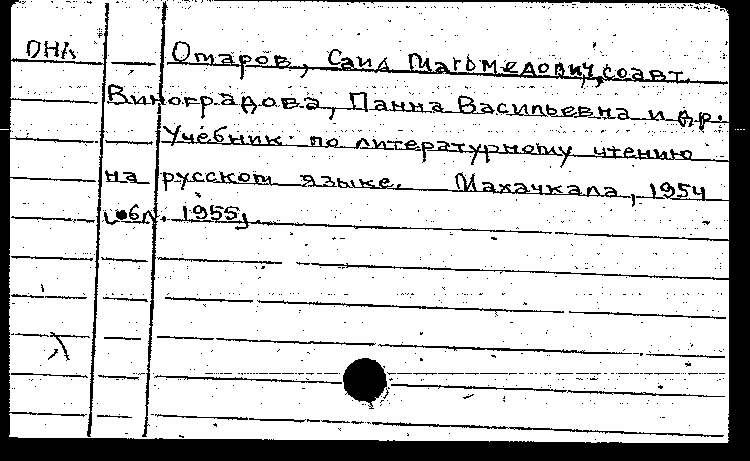 ОНЛ Отаров, Саид Магомедович, соавт.
Виноградова, Панна Васильевна и др.
Учебник по литературному чтению
на русском языке. Махачкала, 1954
[обл. 1955].